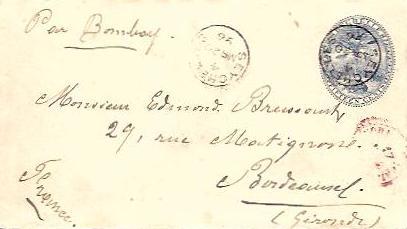 Par Bombay.
SEYCHELLES
Monsieur Edmond
29, rue Matignon
Bordeaux.
(Gironde)
France.